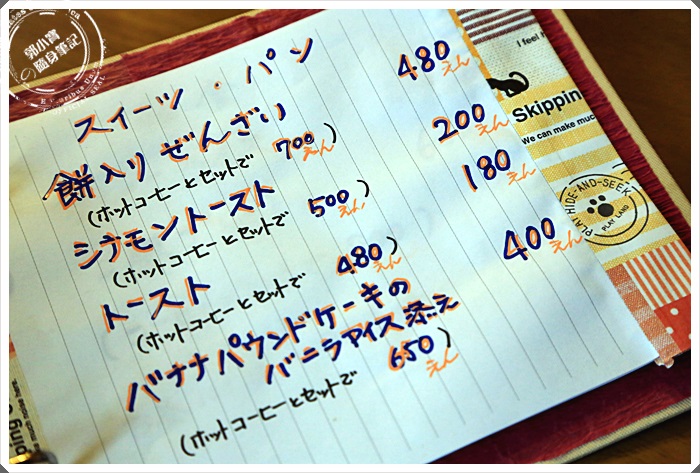 郭小寶
の隨身筆記
スイーツ・パン
餅入りぜんざい 480えん
(ホットコーヒーとセットで 700えん)
シナモントースト 200えん
(ホットコーヒーとセットで 500えん)
トースト 180えん
(ホットコーヒーとセットで 480えん)
バナナパウンドケーキの
バニラアイス添え 400えん
(ホットコーヒーとセットで 650えん)
I feel h
Skippin
We can make muc
PLAY HIDE-AND-SEEK
PLAY LAND